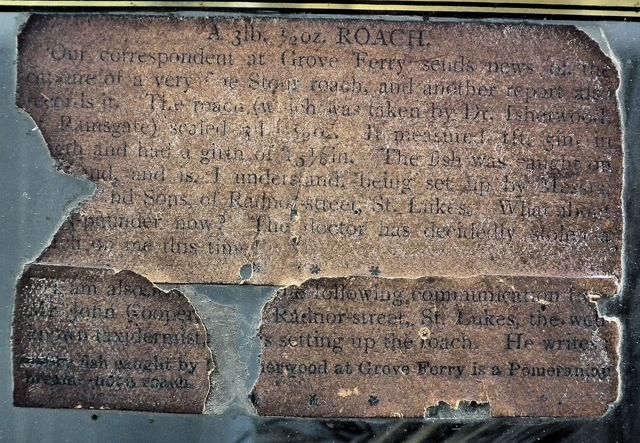 A 3lb. ½oz. ROACH.
Our correspondent at Grove Ferry sends news of the
capture of a very fine Stour roach, and another report also
records it. The roach (which was taken by Dr. Isherwood,
Ramsgate) scaled 3lb. ½oz. It measured 1ft. 5in. in
and had a girth of 15⅛in. The fish was caught on
and is, I understand, being set up by Messrs.
nd Sons, of Radnor-street, St. Lukes. What about
pounder now? The doctor has decidedly stolen a
on me this time
* *
I am also the following communication
Mr. John Cooper Radnor-street, St. Lukes, the well
known taxidermist, s setting up the roach. He writes:
fish caught by erwood at Grove Ferry is a Pomeranian
bream—not a roach.
* *